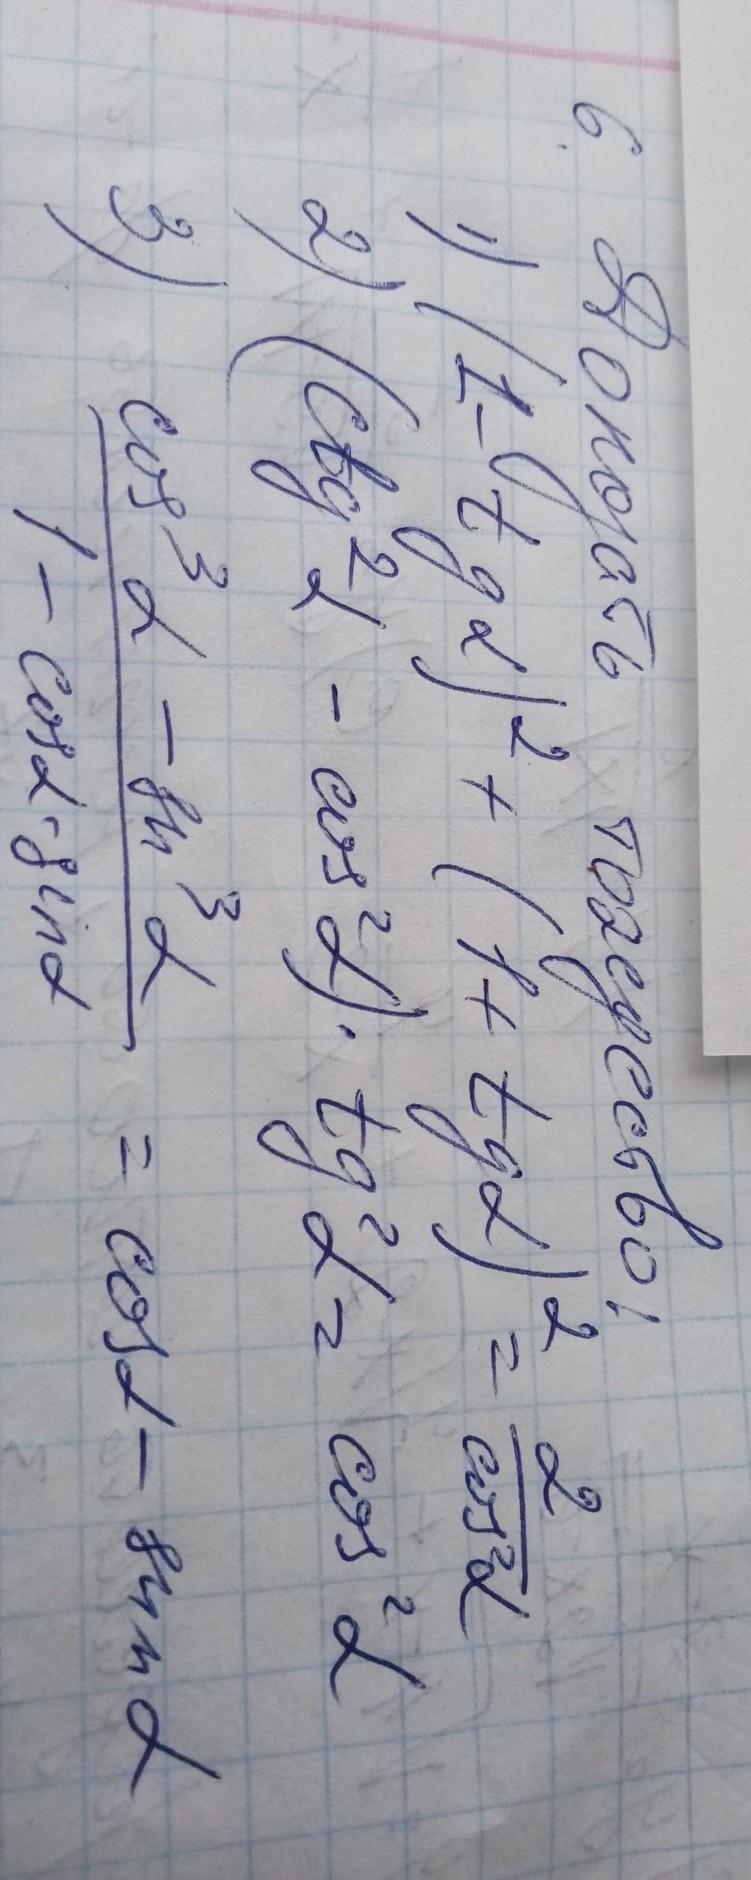 6. Доказать тождество:
1) (1 - tg α)² + (1 + tg α)² = 2/cos²α
2) (ctg²α - cos²α) · tg²α = cos²α
3) (cos³α - sin³α)/(1 - cosα · sinα) = cosα - sinα